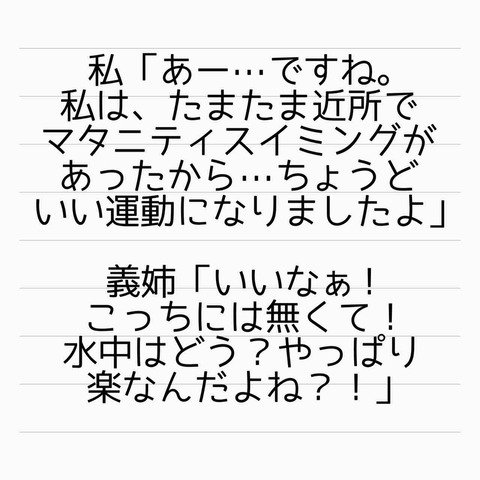 私「あー…ですね。
私は、たまたま近所で
マタニティスイミングが
あったから…ちょうど
いい運動になりましたよ」
義姉「いいなぁ！
こっちには無くて！
水中はどう？やっぱり
楽なんだよね？！」